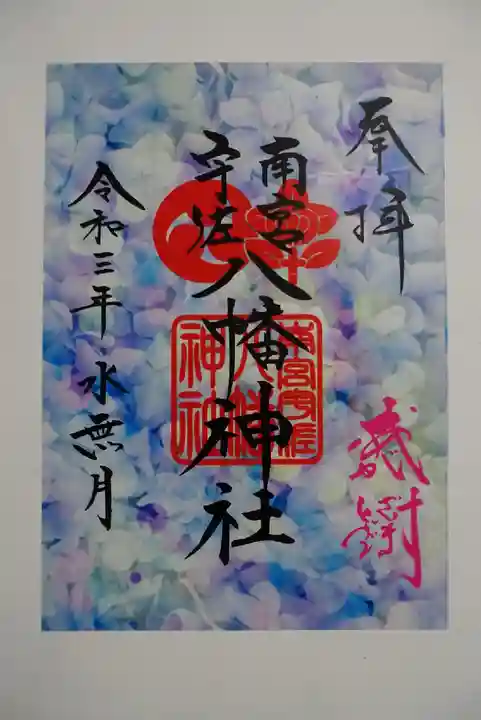 奉拝
南宮
宇佐
八幡神社
南宮宇佐
八幡
神社
令和三年 水無月